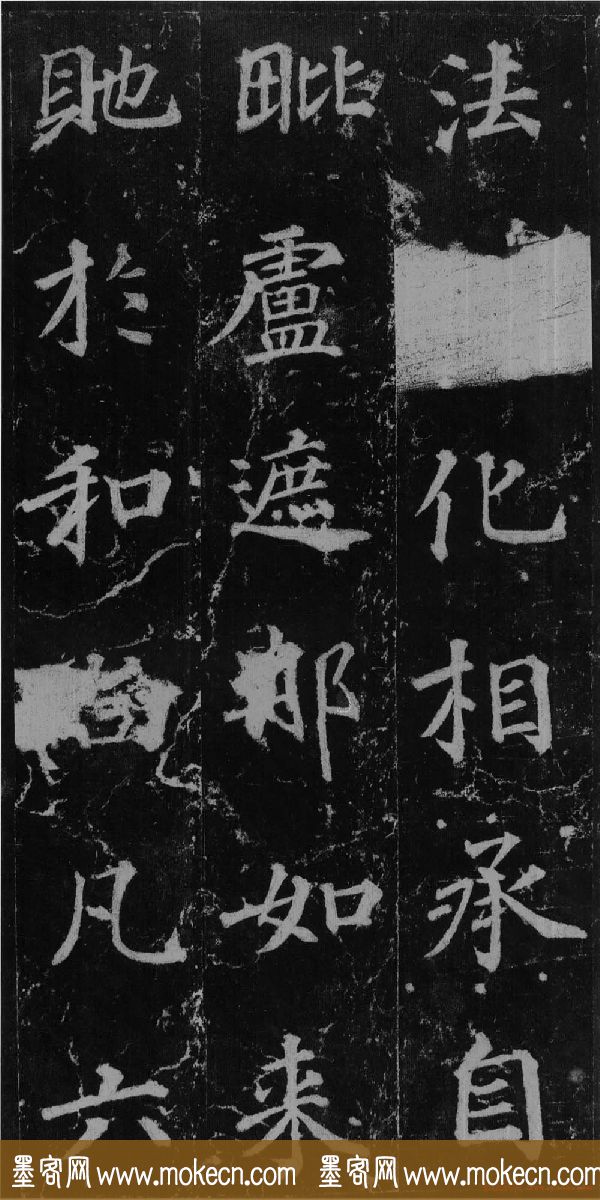 法化相承自
毗盧遮那如来
貤於和尚凡六
墨客网 www.mokecn.com 墨客网 www.mokecn.com